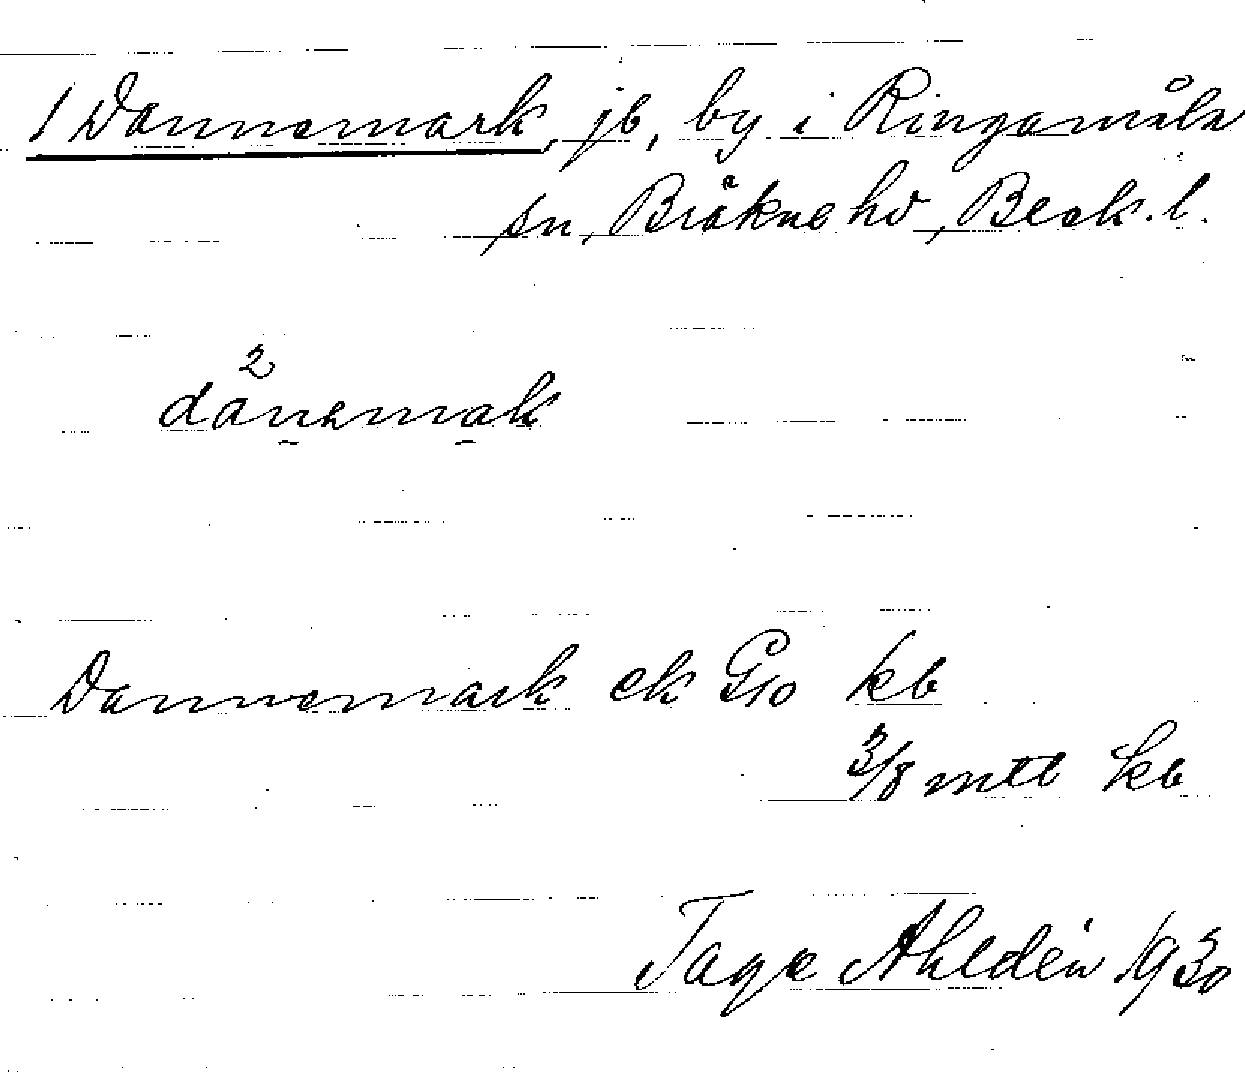 1 Dannemark, jb, by i Ringamåla
sn, Bräkne hd, Blek. l.
dä²nemak
Dannemark ek G10 kb
3/8 mtl kb
Tage Ahldén 1930